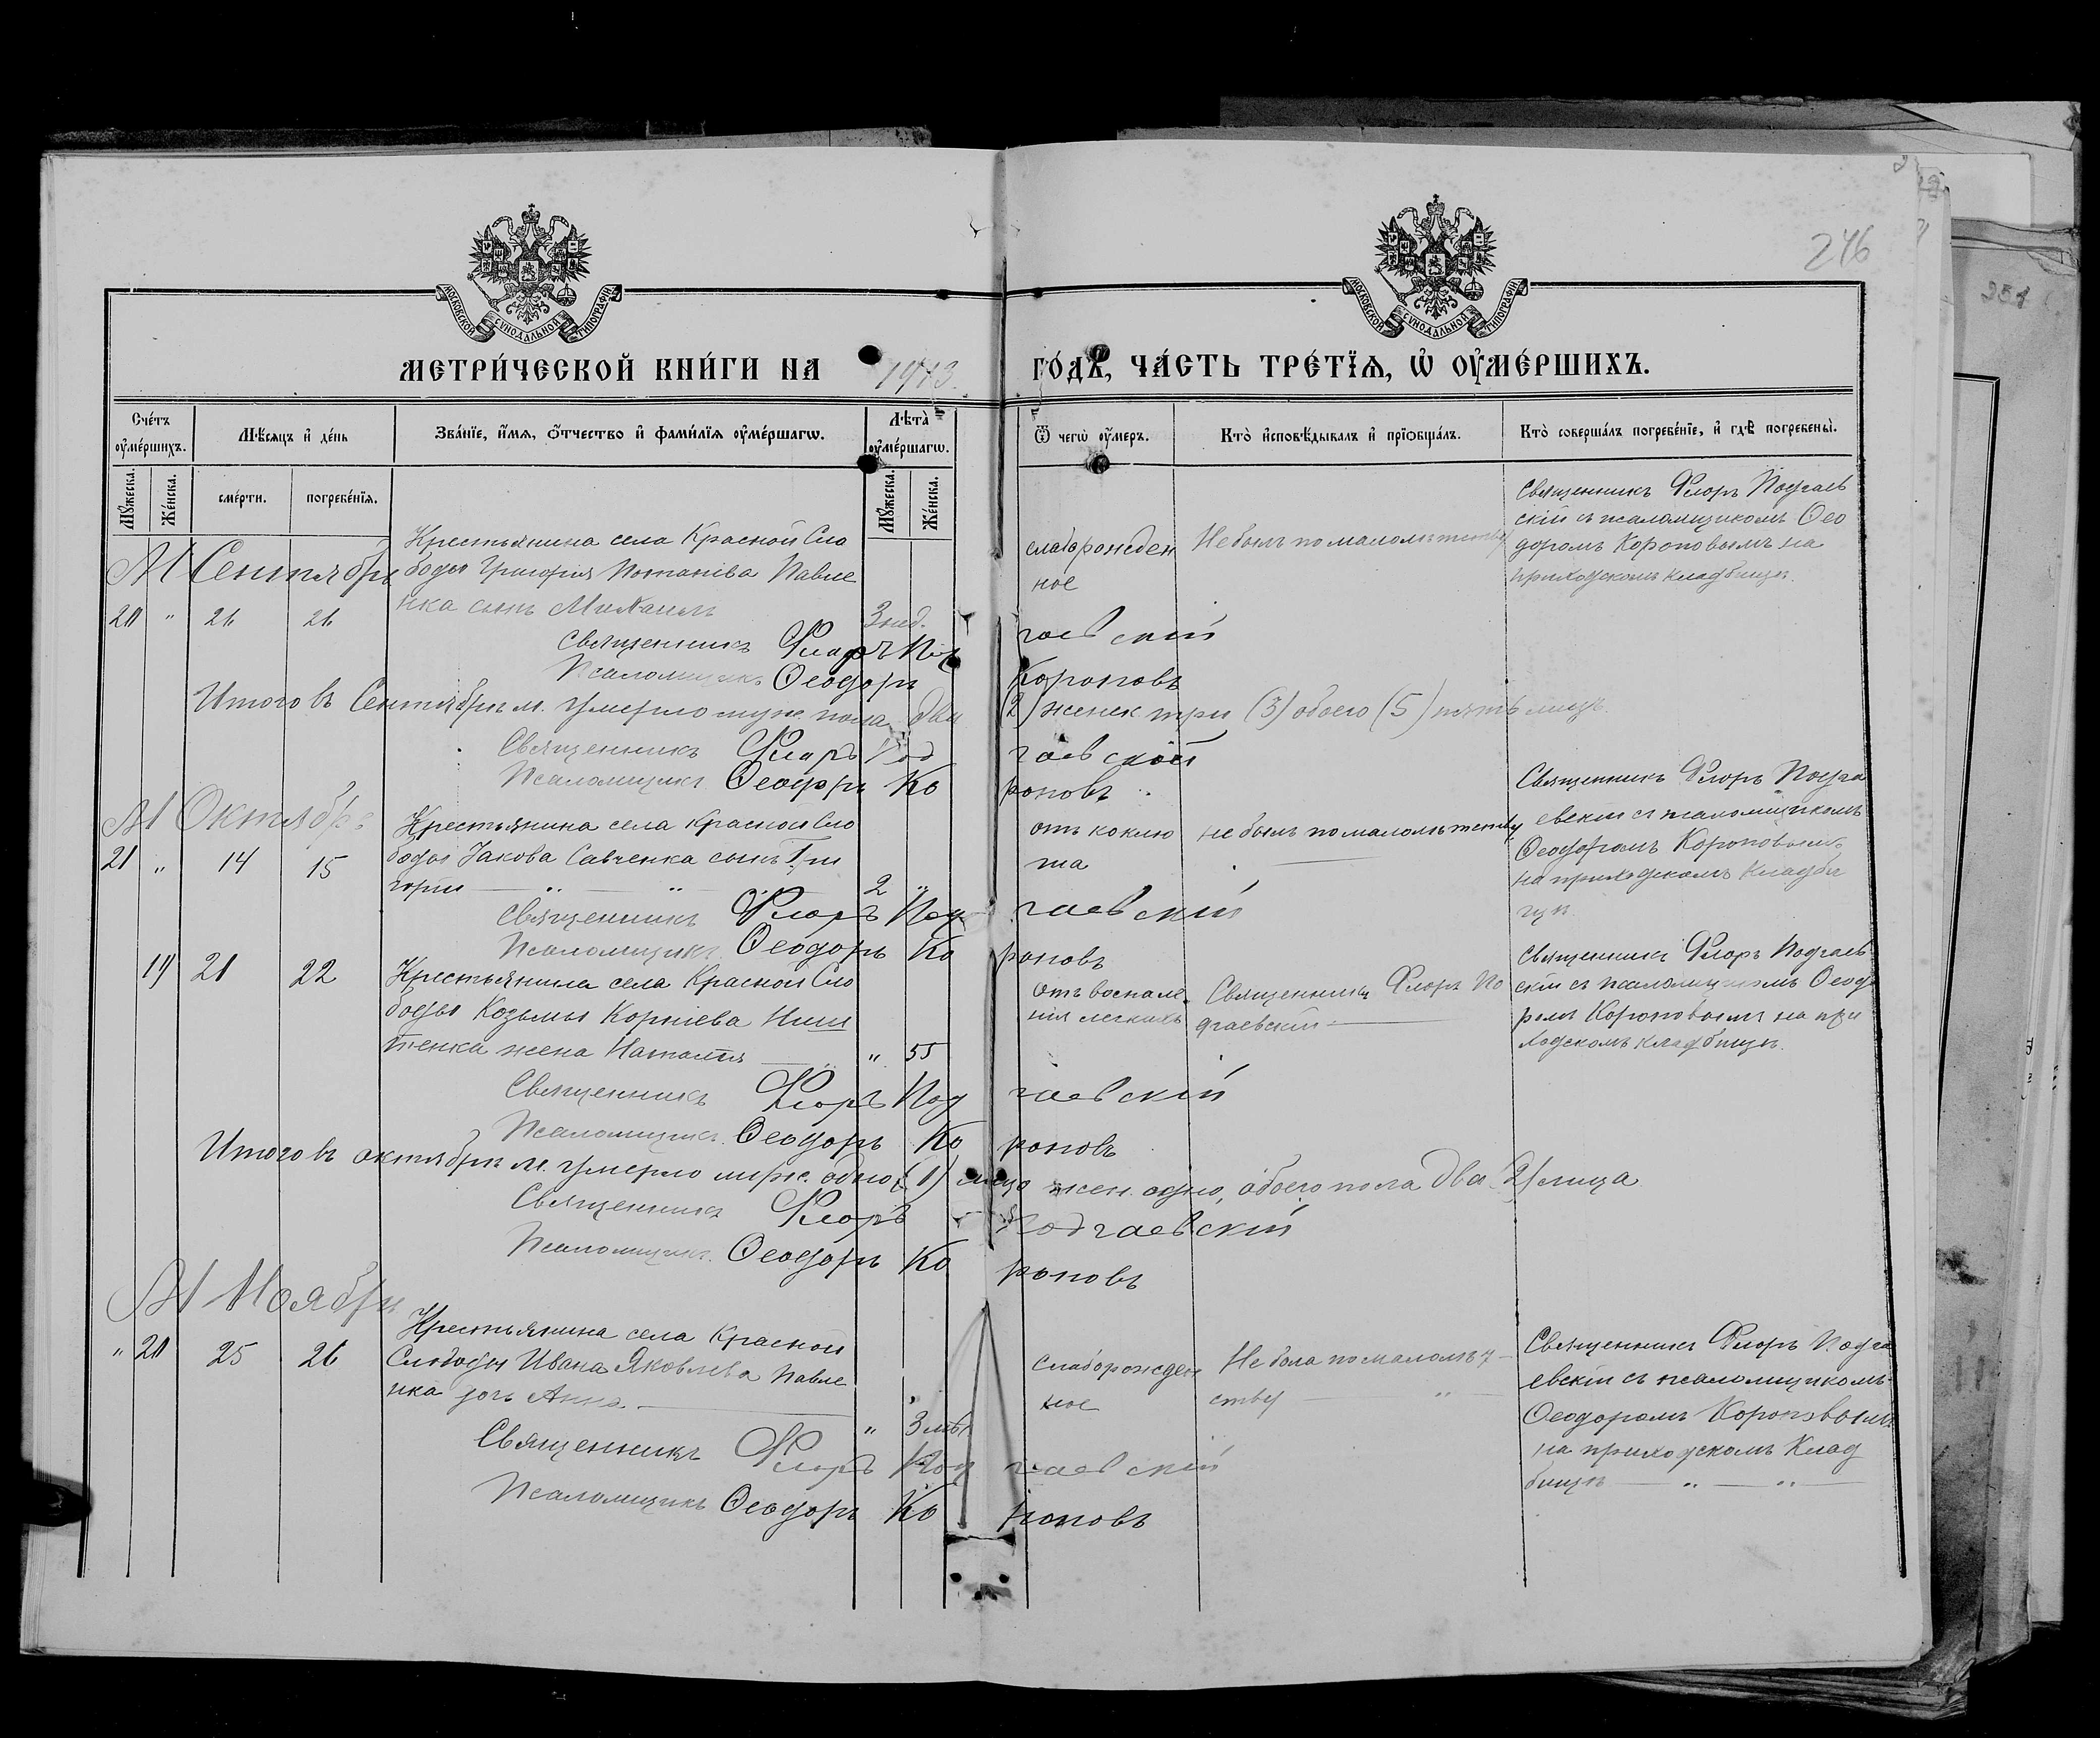 246
251
МОСКОВСКОЙ СѴНОДАЛЬНОЙ ТИПОГРАФІИ
МОСКОВСКОЙ СѴНОДАЛЬНОЙ ТИПОГРАФІИ
МЕТРИ́ЧЕСКОЙ КНИ́ГИ НА 1913. ГО́ДЪ, ЧА́СТЬ ТРЕ́ТЇѦ, Ѡ҆ ОУ҆МЕ́РШИХЪ.
Сче́тъ оу҆ме́ршихъ.
Мѣ́сѧцъ и҆ де́нь
Зва́нїе, и҆́мѧ, ѻ҆́тчество и҆ фами́лїѧ оу҆ме́ршагѡ.
Лѣта̀ оу҆ме́ршагѡ.
Ѿ чегѡ̀ оу҆́меръ.
Кто̀ и҆сповѣ́дывалъ и҆ прїѡбща́лъ.
Кто̀ соверша́лъ погребе́нїе, и҆ гдѣ̀ погребены̀.
Мꙋ́жеска. Же́нска. сме́рти. погребе́нїѧ. Мꙋ́жеска. Же́нска.
М Сентябрь
20 " 26 26
Крестьянина села Красной Сло
боды Григорія Потапіева Павле
нка сынъ Михаилъ
3 нед.
слаборожден
ное
Не былъ по малолѣтству
Священникъ Флоръ Подгаев
скій съ псаломщикомъ Ѳео
доромъ Короповымъ на
приходскомъ кладбищѣ.
Священникъ Флоръ Подгаевскій
Псаломщикъ Ѳеодоръ Короповъ
Итого въ Сентябрѣ м. умерло муж. пола два (2) женск. три (3) обоего (5) пять лицъ.
Священникъ Флоръ Подгаевскій
Псаломщикъ Ѳеодоръ Короповъ
М Октябрь
21 " 14 15
Крестьянина села Красной Сло
боды Іакова Савченка сынъ Гри
горій — " — "
2 "
отъ коклю
ша
не былъ по малолѣтству
Священникъ Флоръ Подга
евскій съ псаломщикомъ
Ѳеодоромъ Короповымъ
на приходскомъ кладби
щѣ.
Священникъ Флоръ Подгаевскій
Псаломщикъ Ѳеодоръ Короповъ
19 21 22
Крестьянина села Красной Сло
боды Козьмы Корніева Ниш
тенка жена Наталія
" 55
Отъ воспале
нія легкихъ
Священникъ Флоръ По
дгаевскій
Священникъ Флоръ Подгаев
скій съ псаломщикомъ Ѳеодо
ромъ Короповымъ на при
ходскомъ кладбищѣ.
Священникъ Флоръ Подгаевскій
Псаломщикъ Ѳеодоръ Короповъ
Итого въ октябрѣ м. умерло муж. одно (1) лицо жен. одно, обоего пола два (2) лица
Священникъ Флоръ Подгаевскій
Псаломщикъ Ѳеодоръ Короповъ
М Ноябрь
" 20 25 26
Крестьянина села Красной
Слободы Ивана Яковлева Павле
нка дочь Анна
" 3 мѣс
слаборожден
ное
Не была по малолѣт
ству — " —
Священникъ Флоръ Подга
евскій съ псаломщикомъ
Ѳеодоромъ Короповымъ
на приходскомъ клад
бищѣ — " — " —
Священникъ Флоръ Подгаевскій
Псаломщикъ Ѳеодоръ Короповъ